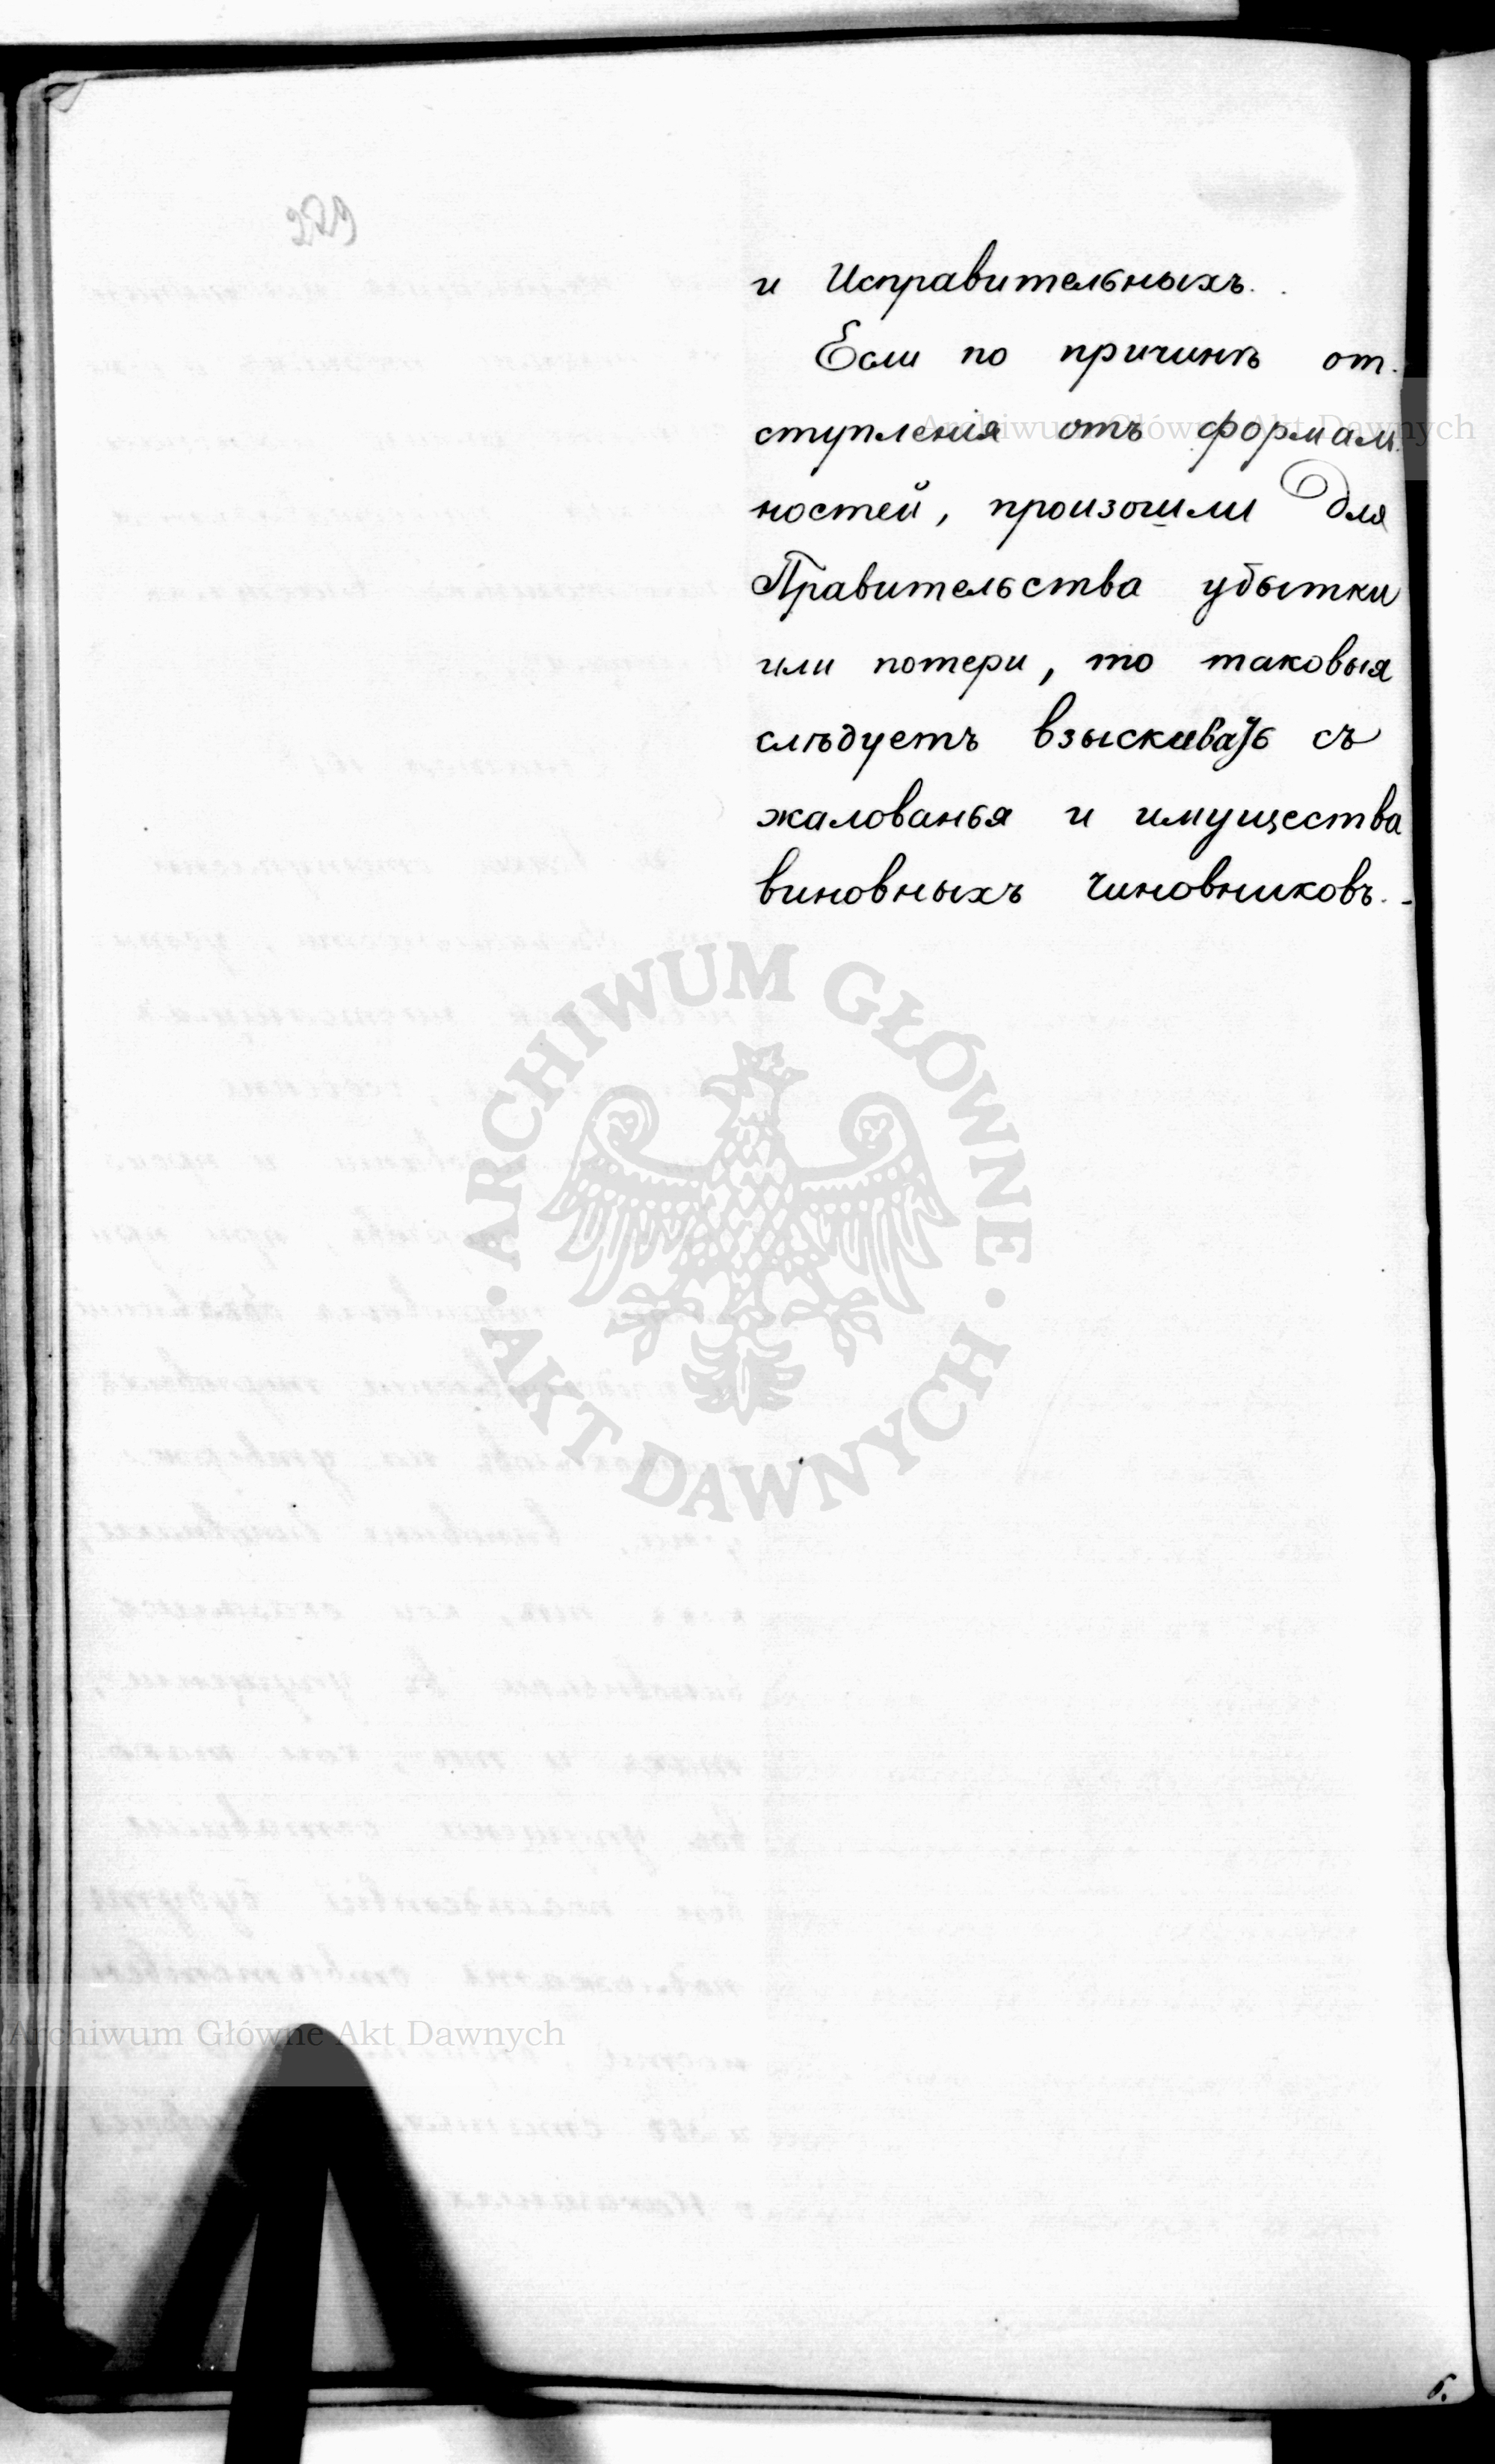 279
и Исправительныхъ.
Если по причинѣ от-
ступленія отъ формаль-
ностей, произошли для
Правительства убытки
или потери, то таковыя
слѣдуетъ взыскивать съ
жалованья и имущества
виновныхъ чиновниковъ.-
Archiwum Główne Akt Dawnych
ARCHIWUM GŁÓWNE
AKT DAWNYCH
Archiwum Główne Akt Dawnych